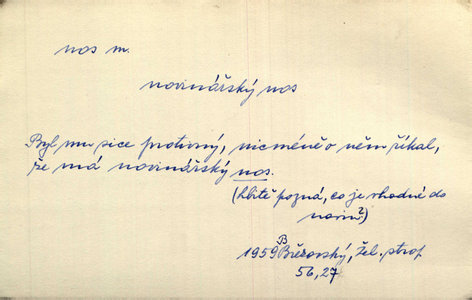 nos m.
novinářský nos
Byl mu sice protivný, nicméně o něm říkal,
že má novinářský nos.
(hbitě pozná, co je vhodné do
novin?)
1959 Březovský, Žel. strop
56, 27